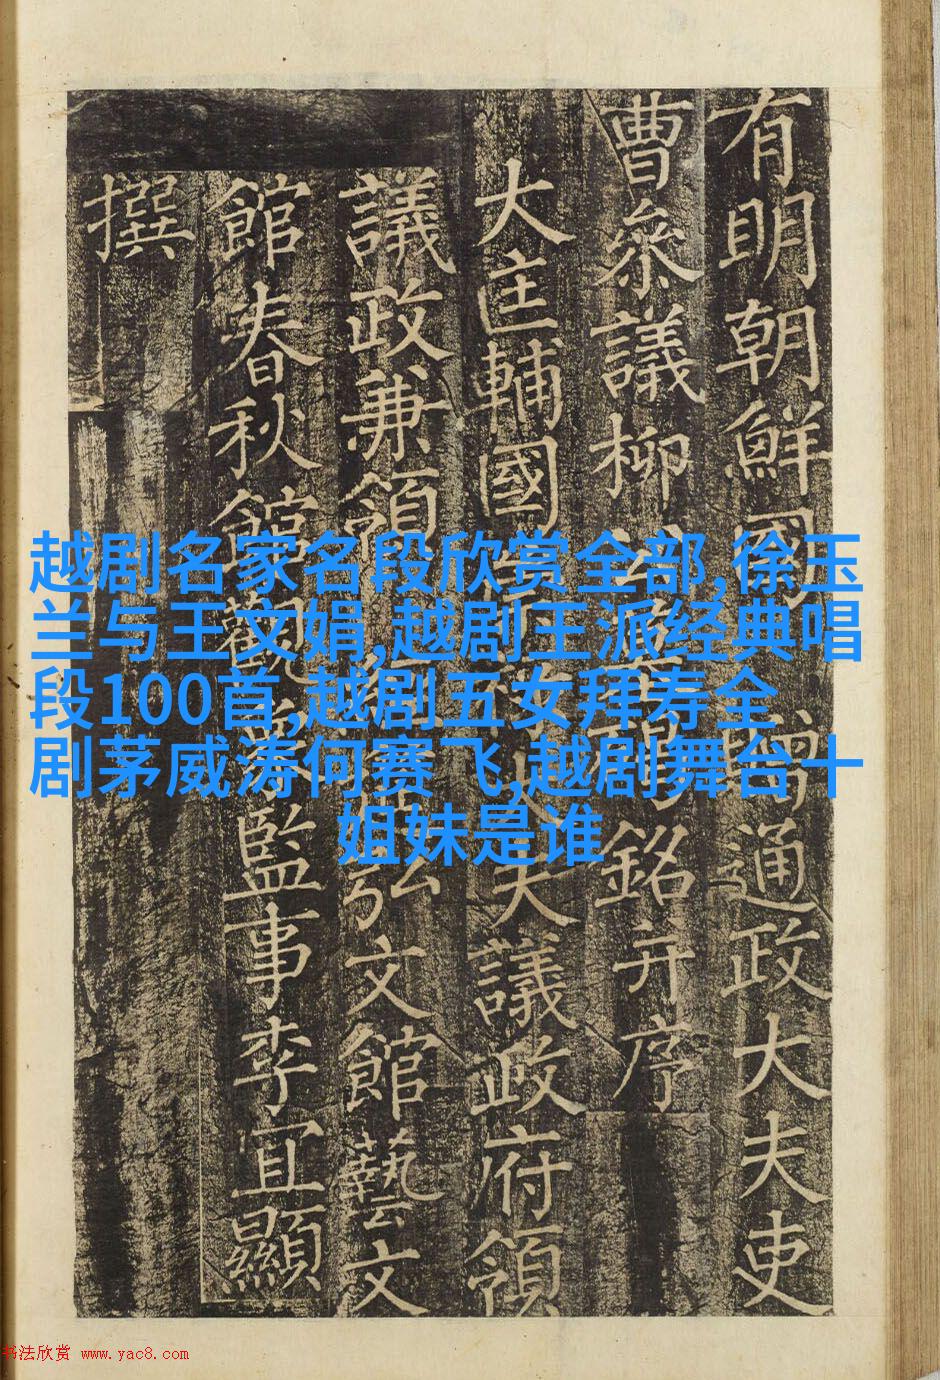 越剧名家名段欣赏全部,徐玉
兰与王文娟,越剧王派经典唱
段100首,越剧五女拜寿全
剧茅威涛何赛飞,越剧舞台十
姐妹是谁
有明朝鮮國贈通政大夫吏
曹叅議柳銘并序
大匡輔國夫議政府領
議政兼領弘文館藝文
館春秋館觀監事李宜顯
撰
书法欣赏 www.yac8.com